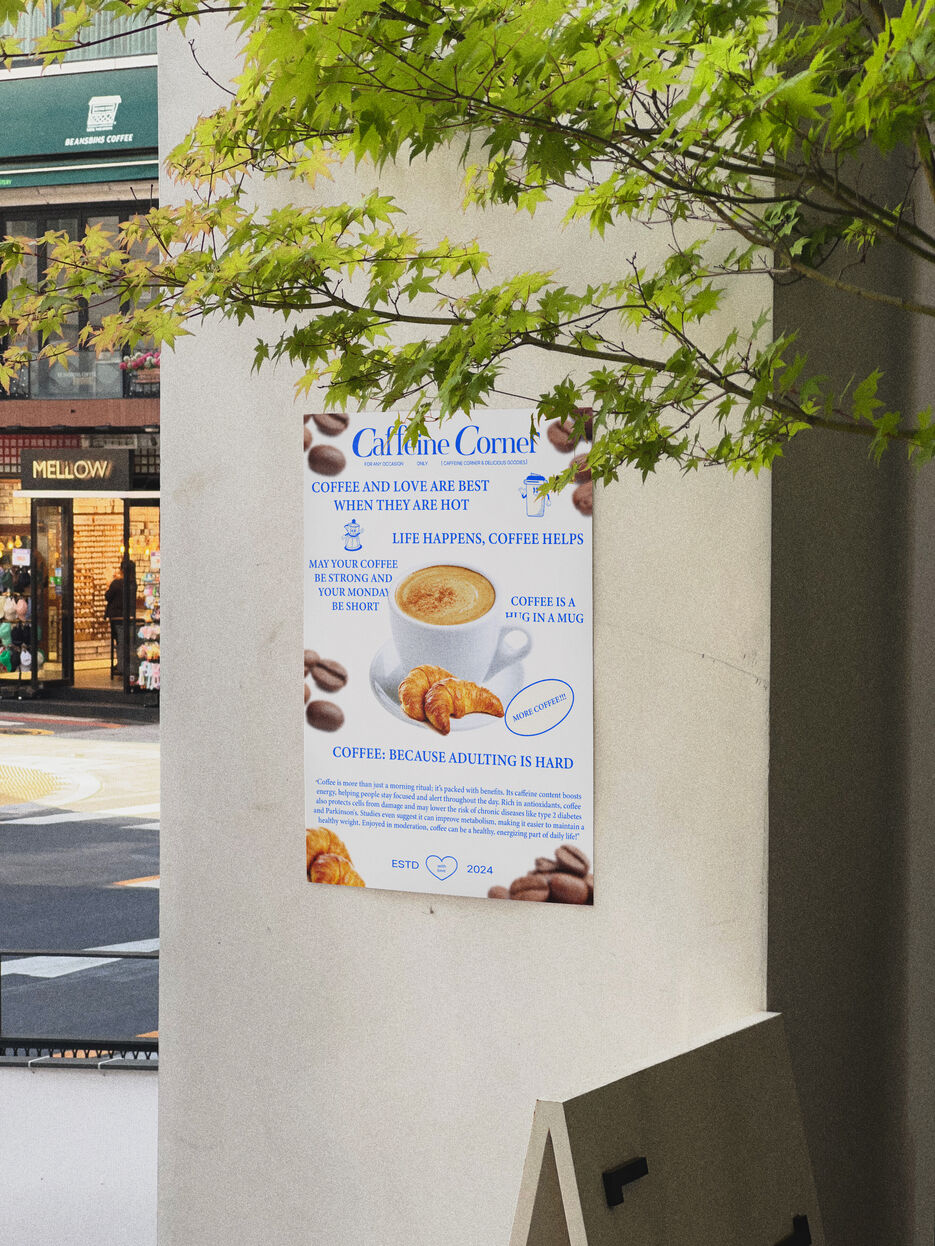 BEANSBINS COFFEE
MELLOW
Caffeine Corner
FOR ANY OCCASION ONLY [ CAFFEINE CORNER & DELICIOUS GOODIES]
COFFEE AND LOVE ARE BEST
WHEN THEY ARE HOT
LIFE HAPPENS, COFFEE HELPS
MAY YOUR COFFEE
BE STRONG AND
YOUR MONDAY
BE SHORT
COFFEE IS A
HUG IN A MUG
MORE COFFEE!!!
COFFEE: BECAUSE ADULTING IS HARD
"Coffee is more than just a morning ritual; it's packed with benefits. Its caffeine content boosts
energy, helping people stay focused and alert throughout the day. Rich in antioxidants, coffee
also protects cells from damage and may lower the risk of chronic diseases like type 2 diabetes
and Parkinson's. Studies even suggest it can improve metabolism, making it easier to maintain a
healthy weight. Enjoyed in moderation, coffee can be a healthy, energizing part of daily life!"
ESTD with love 2024